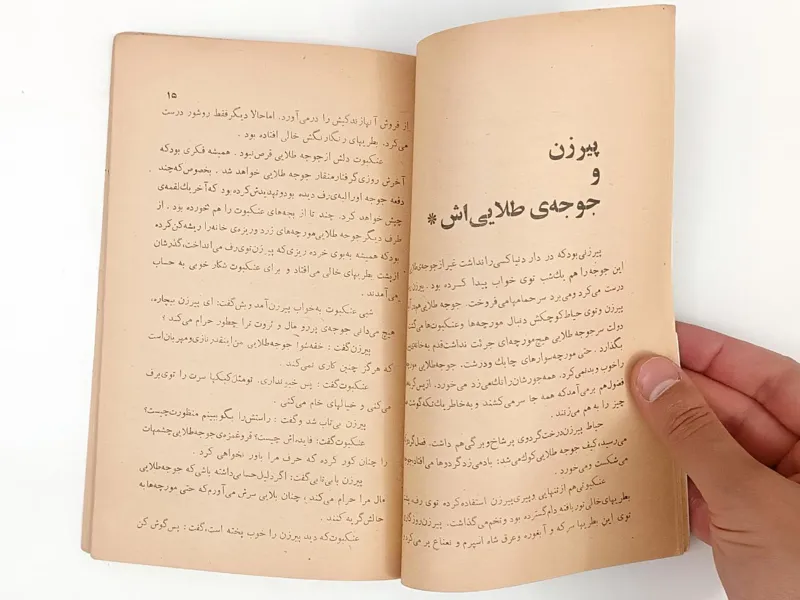 پیرزن
و
جوجه‌ی طلایی‌اش *
پیرزنی بود که در دار دنیا کسی را نداشت غیر از جوجه‌ی طلایی
این جوجه را هم یک شب توی خواب پیدا کرده بود. پیرزن
درست می‌کرد و می‌برد سر حمامها می‌فروخت. جوجه طلایی هم
پیرزن و توی حیاط کوچکش دنبال مورچه‌ها و عنکبوت‌ها می‌گشت
دولت سر جوجه طلایی هیچ مورچه‌ای جرئت نداشت قدم به خانه
بگذارد. حتی مورچه سوارهای چابک و درشت. جوجه طلایی مورچه
را خوب و بد نمی‌کرد. همه جورشان را نک می‌زد می‌خورد. از پس
فضول هم بر می‌آمد که همه جا سر می‌کشند و به خاطر یک تکه گوشت
چیز را به هم می‌زنند.
حیاط پیرزن درخت گردوی پر شاخ و برگی هم داشت. فصل گردو
می‌رسید، کیف جوجه طلایی کوک می‌شد: باد می‌زد گردوها می‌افتاد جوجه
می‌شکست و می‌خورد.
عنکبوتی هم از تنهایی و پیری پیرزن استفاده کرده توی رف پشت
بطریهای خالی تور بافته دام گسترده بود و تخم می‌گذاشت. پیرزن روزگاری
توی این بطریها سرکه و آبغوره و عرق شاه اسپرم و نعناع پر می‌کرد
۱۵
از فروش آنها زندگیش را درمی‌آورد. اما حالا دیگر فقط روشور درست
می‌کرد. بطریهای رنگارنگش خالی افتاده بود.
عنکبوت دلش از جوجه طلایی قرص نبود. همیشه فکری بود که
آخرش روزی گرفتار منقار جوجه طلایی خواهد شد. بخصوص که چند
دفعه جوجه او را لبه‌ی رف دیده بود و تهدیدش کرده بود که آخر یک لقمه‌ی
چپش خواهد کرد. چند تا از بچه‌های عنکبوت را هم خورده بود. از
طرف دیگر جوجه طلایی مورچه‌های زرد و ریزه‌ی خانه را ریشه کن کرده
بود که همیشه به بوی خرده ریزی که پیرزن توی رف می‌انداخت، گذرشان
از پشت بطریهای خالی می‌افتاد و برای عنکبوت شکار خوبی به حساب
می‌آمدند.
شبی عنکبوت به خواب پیرزن آمد و بش گفت: ای پیرزن بیچاره،
هیچ می‌دانی جوجه‌ی پررو مال و ثروت ترا چطور حرام می‌کند؟
پیرزن گفت: خفه شو! جوجه طلایی من اینقدر نازی و مهربان است
که هرگز چنین کاری نمی‌کند.
عنکبوت گفت: پس خبر نداری. تو مثل کبکها سرت را توی برف
می‌کنی و خیالهای خام می‌کنی.
پیرزن بی‌تاب شد و گفت: راستش را بگو ببینم منظورت چیست؟
عنکبوت گفت: فایده‌اش چیست؟ قر و غمزه‌ی جوجه طلایی چشمهات
را چنان کور کرده که حرف مرا باور نخواهی کرد.
پیرزن با بی‌تابی گفت: اگر دلیل حسابی داشته باشی که جوجه طلایی
مال مرا حرام می‌کند، چنان بلایی سرش می‌آورم که حتی مورچه‌ها به
حالش گریه کنند.
عنکبوت که دید پیرزن را خوب پخته است، گفت: پس گوش کن